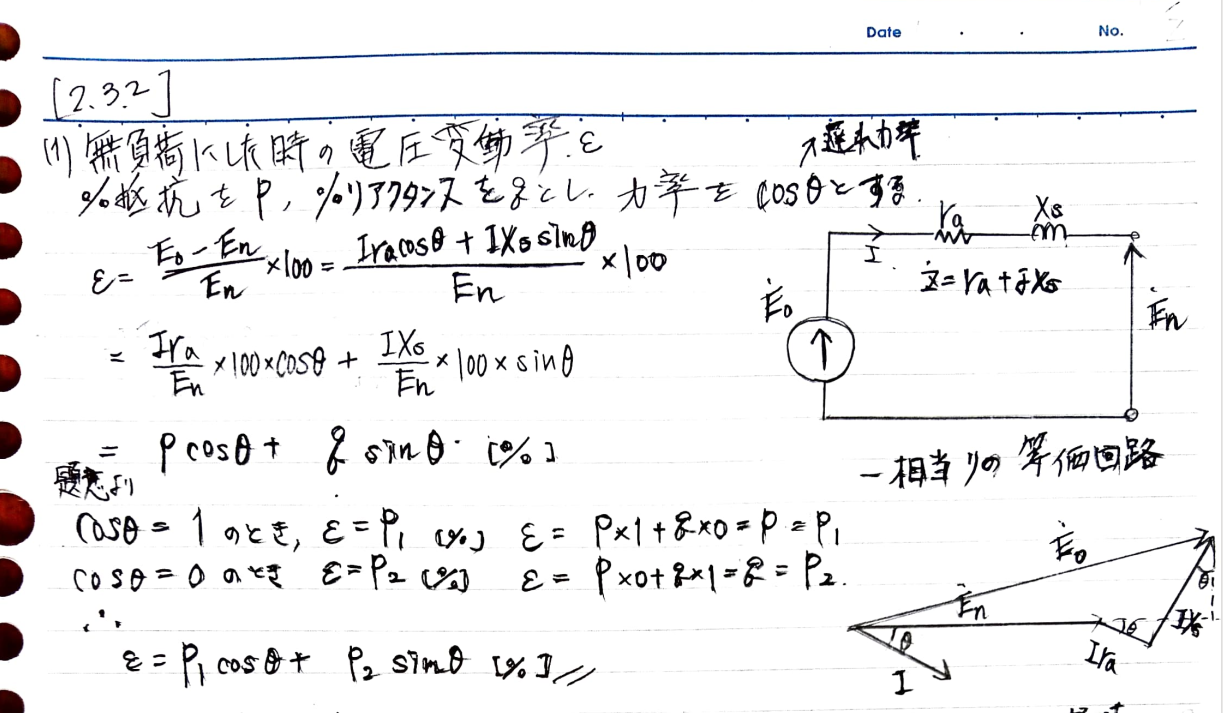 Date . . No.
[2.3.2]
(1) 無負荷にした時の電圧変動率 ε
%抵抗をp, %リアクタンスをqとし、力率をcosθとする。
遅れ力率
ε = (E₀ - En)/En ×100 = (Ira cosθ + IXs sinθ)/En ×100
= Ira/En ×100×cosθ + IXs/En ×100×sinθ
= p cosθ + q sinθ [%]
題意より
cosθ = 1 のとき, ε = P₁ [%] ε = p×1+q×0 = p = P₁
cosθ = 0 のとき ε = P₂ [%] ε = p×0+q×1 = q = P₂.
∴
ε = P₁ cosθ + P₂ sinθ [%]//
ra Xs
I
Ż = ra + jXs
Ė₀
Ėn
一相当りの等価回路
Ė₀
Ėn
θ
θ
θ
IXs
Ira
I